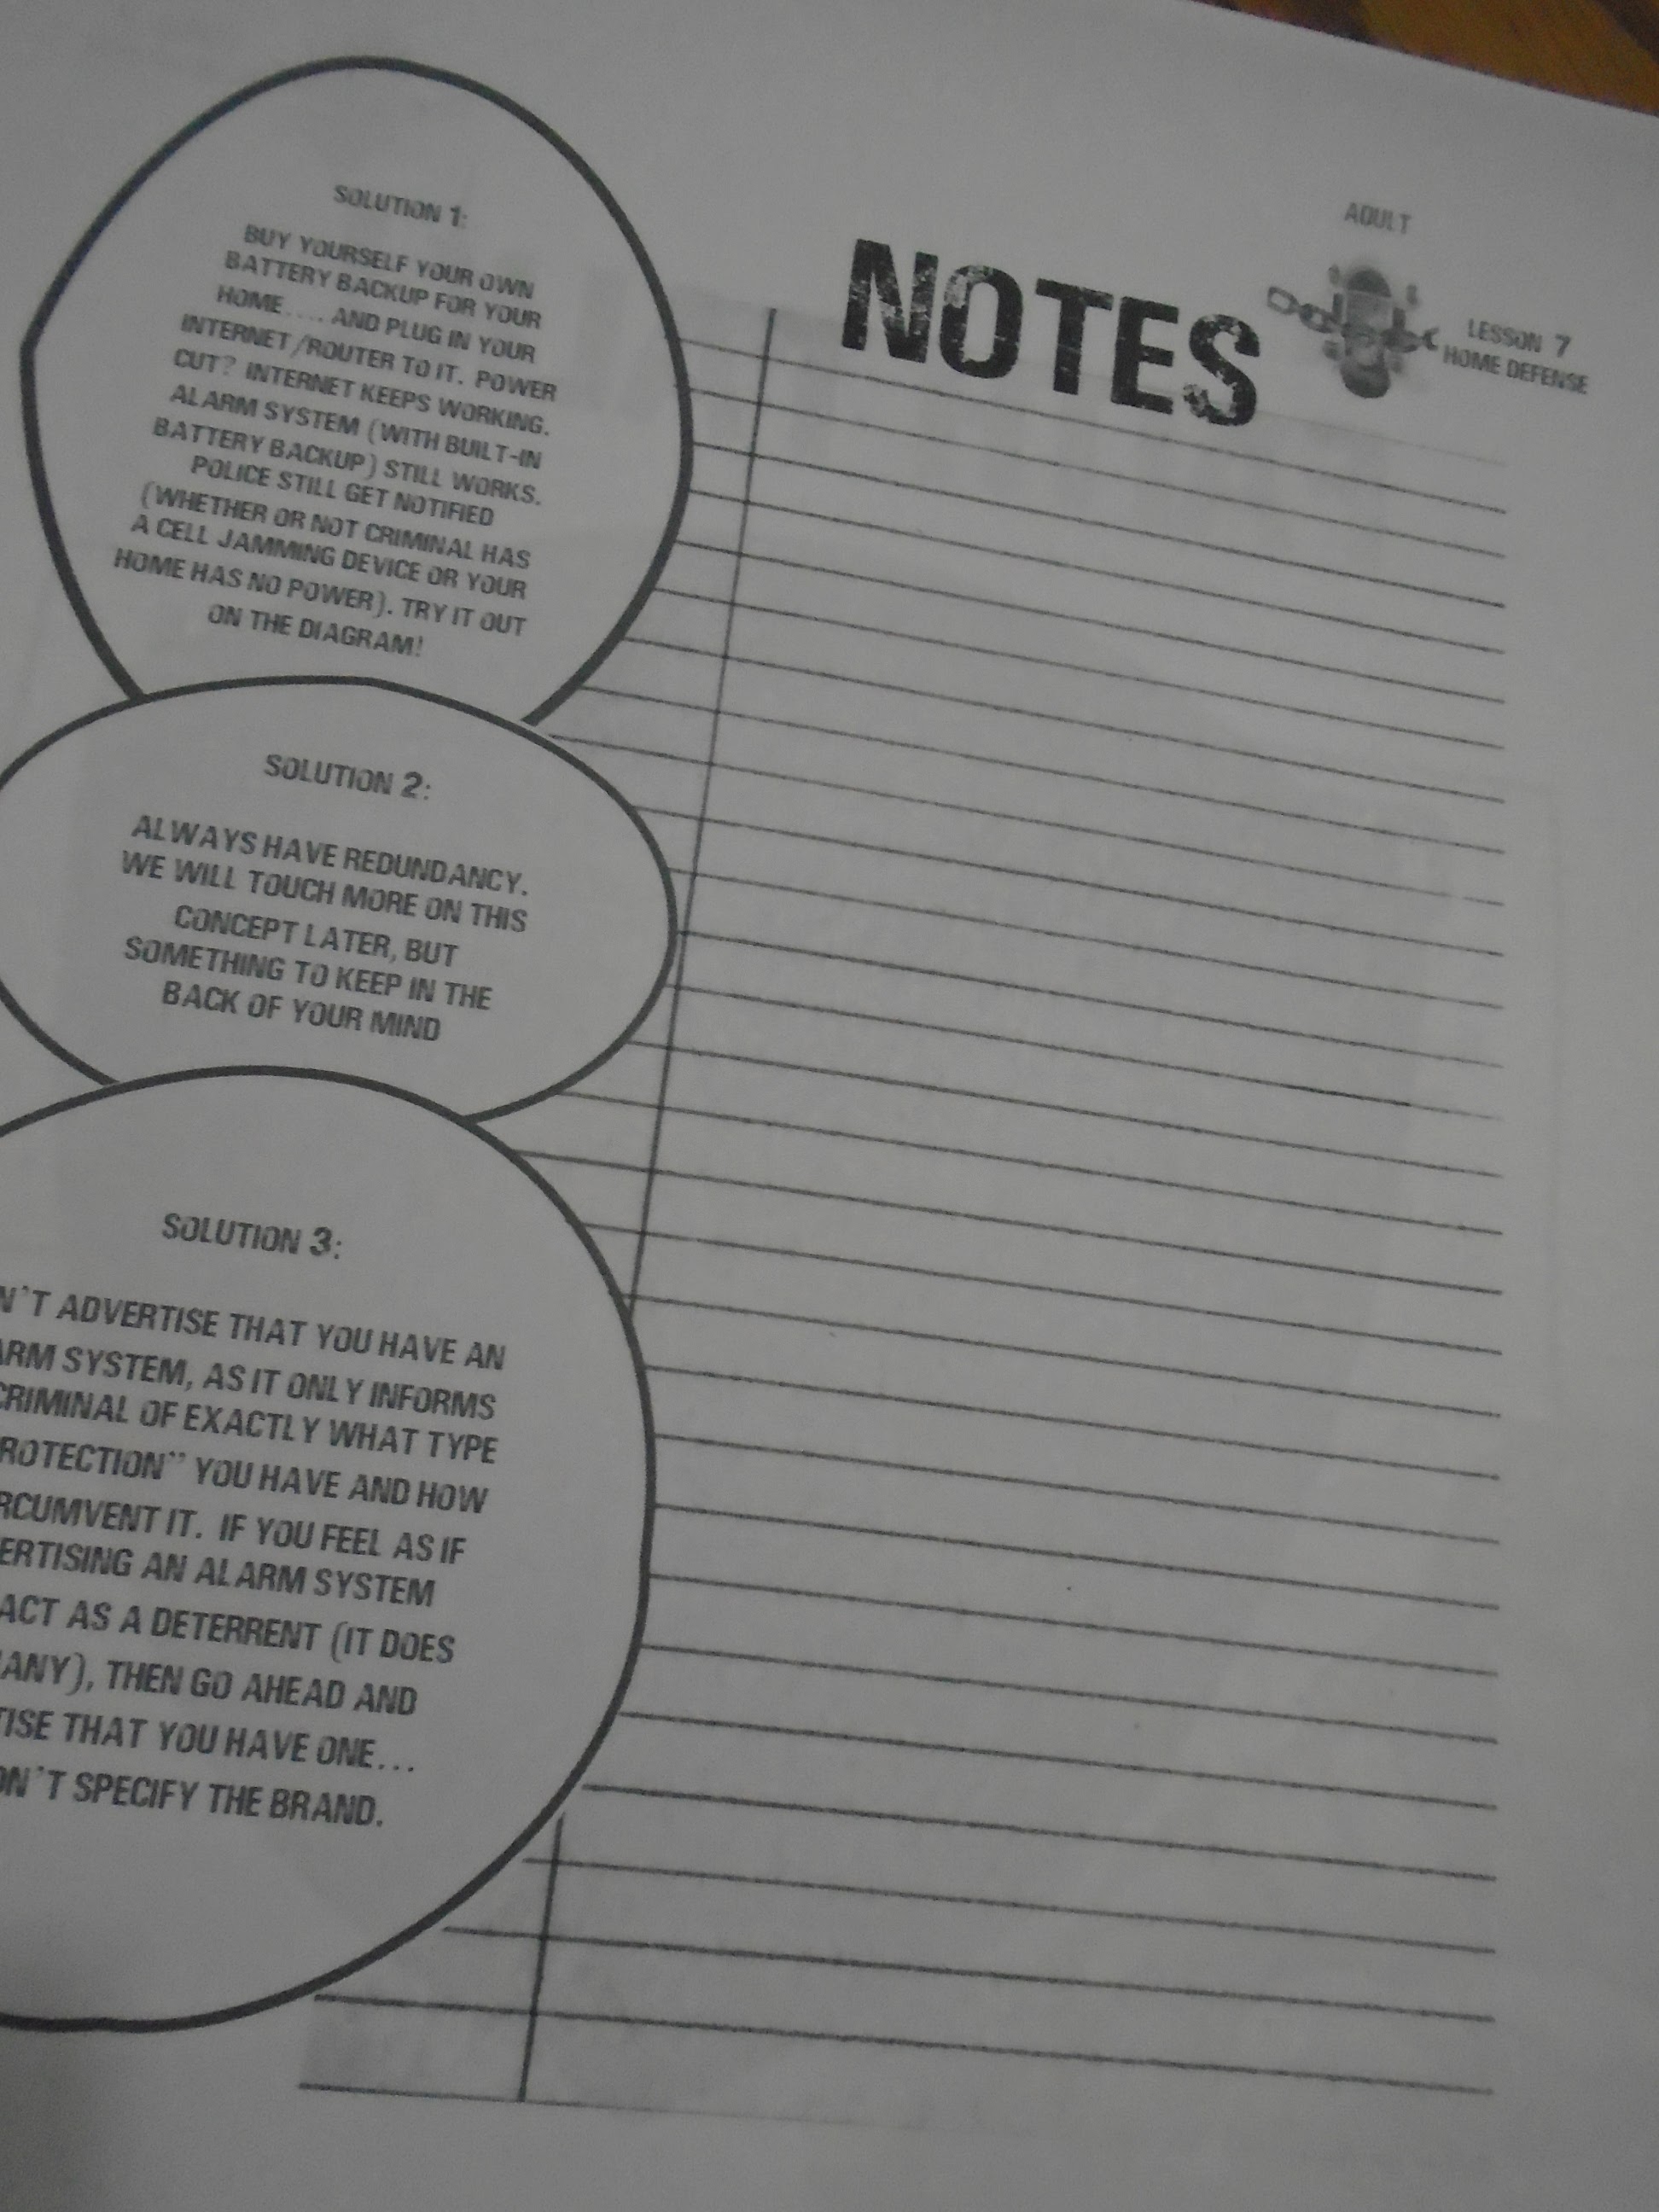 ADULT
NOTES
LESSON 7
HOME DEFENSE
SOLUTION 1:
BUY YOURSELF YOUR OWN
BATTERY BACKUP FOR YOUR
HOME.... AND PLUG IN YOUR
INTERNET/ROUTER TO IT. POWER
CUT? INTERNET KEEPS WORKING.
ALARM SYSTEM (WITH BUILT-IN
BATTERY BACKUP) STILL WORKS.
POLICE STILL GET NOTIFIED
(WHETHER OR NOT CRIMINAL HAS
A CELL JAMMING DEVICE OR YOUR
HOME HAS NO POWER). TRY IT OUT
ON THE DIAGRAM!
SOLUTION 2:
ALWAYS HAVE REDUNDANCY.
WE WILL TOUCH MORE ON THIS
CONCEPT LATER, BUT
SOMETHING TO KEEP IN THE
BACK OF YOUR MIND
SOLUTION 3:
N'T ADVERTISE THAT YOU HAVE AN
ARM SYSTEM, AS IT ONLY INFORMS
CRIMINAL OF EXACTLY WHAT TYPE
ROTECTION" YOU HAVE AND HOW
RCUMVENT IT. IF YOU FEEL AS IF
ERTISING AN ALARM SYSTEM
ACT AS A DETERRENT (IT DOES
MANY), THEN GO AHEAD AND
TISE THAT YOU HAVE ONE...
ON'T SPECIFY THE BRAND.